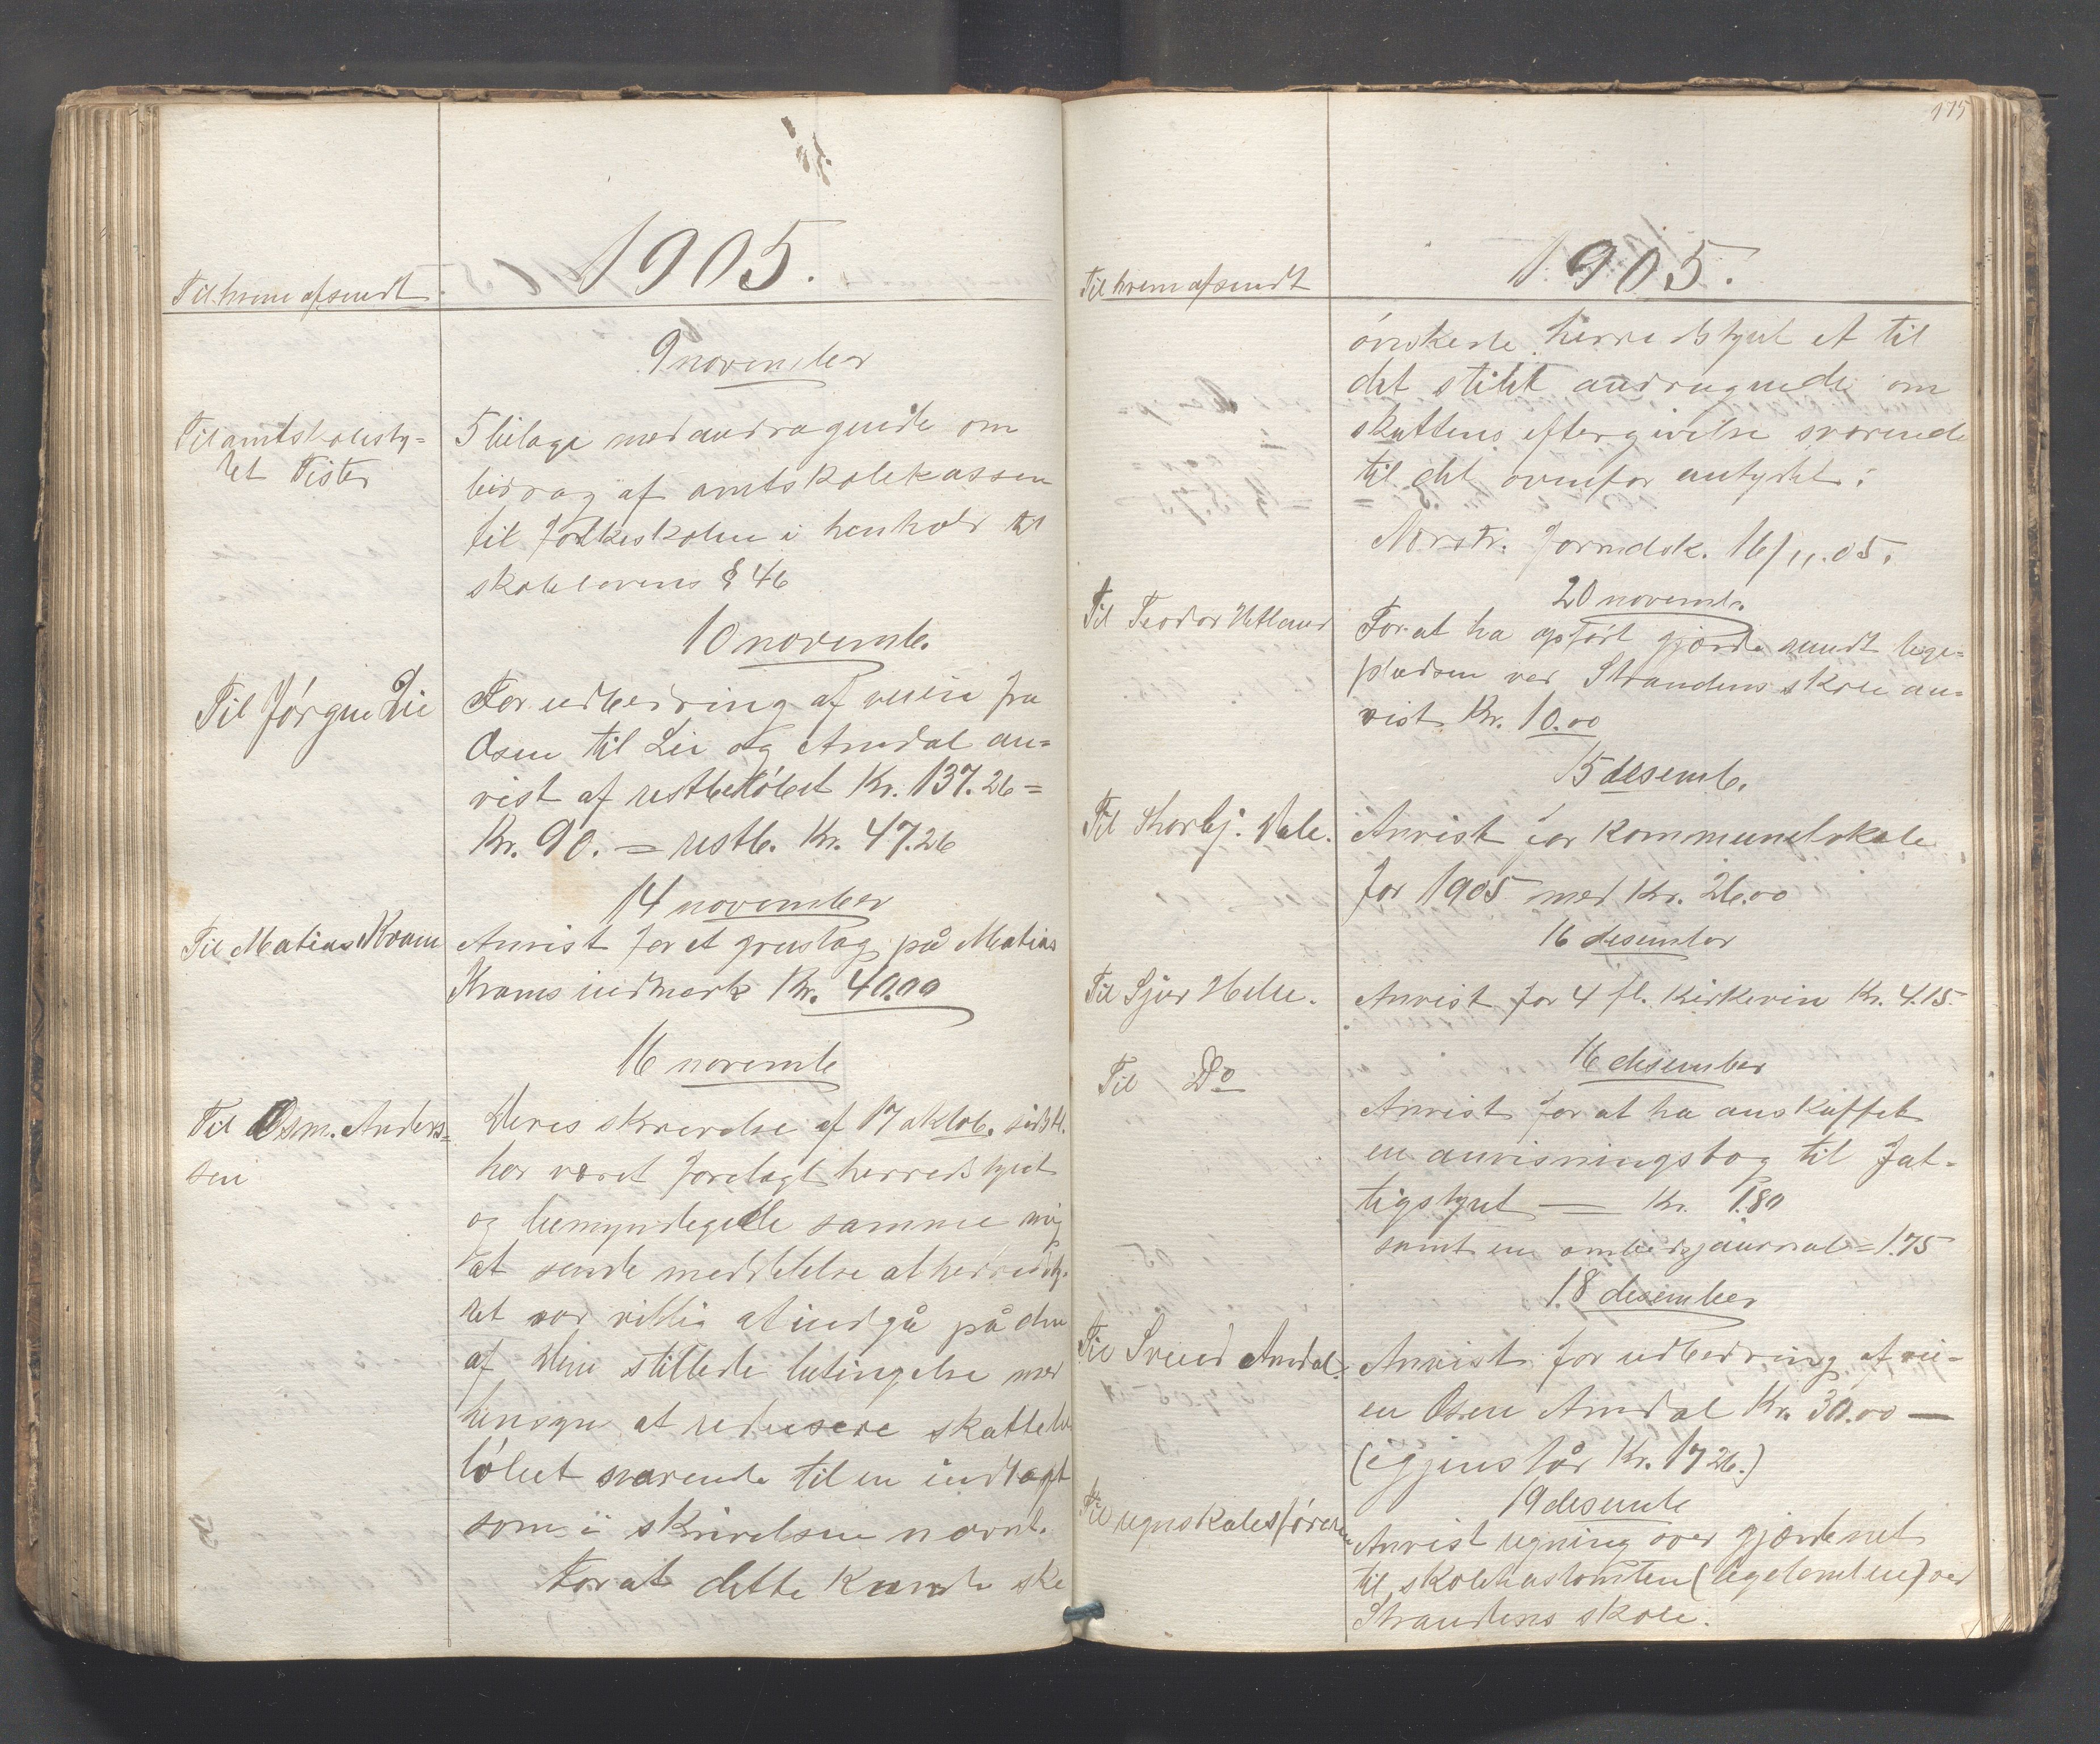 1905.
Til hvem afsendt
9 november
Til amtskolesty=
ret Tister
5 bilage med andragende om
bidrag af amtskolekassen
til folkeskolen i henhold til
skolelovens § 46
10 novemb.
Til Jørgen Lie
For udbedring af veien fra
Osen til Lie og Amdal an=
vist af restbeløbet Kr. 137.26 =
Kr. 90. = restb. Kr. 47.26
14 november
Til Matias Kram
Anvist for et grustag på Matias
Krams indmark Kr. 40.00
16 novemb
Til Osm. Anders=
sen
Deres skrivelse af 17 oktob. sidstl.
har været forelagt herredstyret
og bemyndigede samme mig
at sende meddelelse at herredsty-
ret var villig at indgå på den
af Dem stillede betingelse med
hensyn at redusere skattebe
løbet svarende til en indtægt
som i skrivelsen nævnt.
Forat dette kunde ske
175
1905.
Til hvem afsendt
ønskede herredstyret et til
det stilet andragende om
skattens eftergivelse svarende
til det ovenfor antydet.
Norstr. formdsk. 16/11.05.
20 novemb.
Til Teodor Hetland
For at ha opført gjærde rundt lege=
pladsen ved Strandens skole an=
vist Kr. 10.00
15 desemb.
Til Thorbj. Dale.
Anvist for kommunelokale
for 1905 med Kr. 26.00
16 desember
Til Sjur Helle.
Anvist for 4 fl. kirkevin Kr. 4.15.
16 desember
Til Do
Anvist for at ha anskaffet
en anvisningsbog til fat=
tigstyret — Kr. 1.80
samt en ombudsjournal = 1.75
18 desember
Til Svend Amdal.
Anvist for udbedring af vei=
en Osen Amdal Kr. 30.00 —
(igjenstår Kr. 17 26.)
19 desemb
Til regnskabsføreren
Anvist regning over gjærdenet
til skolehustomten (legetomten) ved
Strandens skole.